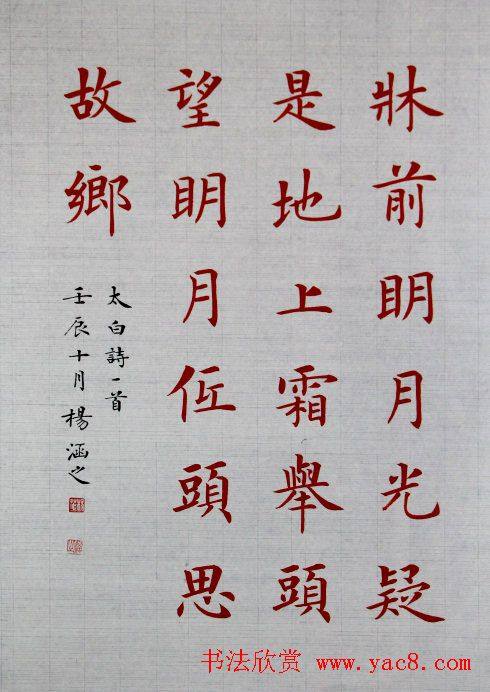 牀前明月光疑
是地上霜舉頭
望明月低頭思
故鄉
太白詩一首
壬辰十月楊涵之
书法欣赏 www.yac8.com